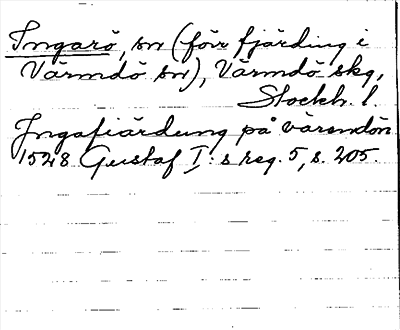 Ingarö, sn (förr fjärding i
Värmdö sn), Värmdö skg,
Stockh. l.
Jngafiärdung på värmdön
1528 Gustaf I:s reg. 5, s. 205.